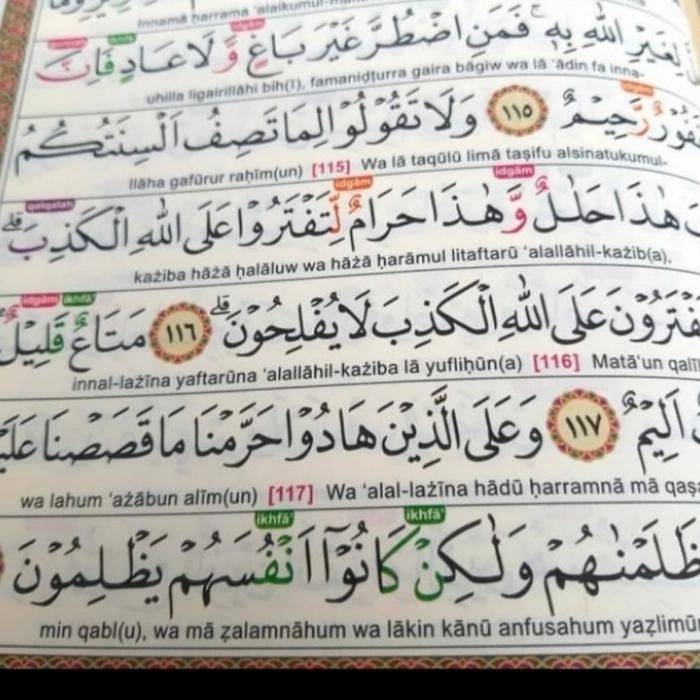 Innamā ḥarrama 'alaikumul-
idgām ikhfā'
لِغَيْرِ اللّٰهِ بِهٖۚ فَمَنِ اضْطُرَّ غَيْرَ بَاغٍ وَّلَا عَادٍ فَاِنَّ
uhilla ligairillāhi bih(ī), famaniḍṭurra gaira bāgiw wa lā 'ādin fa inna-
idgām
رَّحِيْمٌ ۝١١٥ وَلَا تَقُوْلُوْا لِمَا تَصِفُ اَلْسِنَتُكُمُ
llāha gafūrur raḥīm(un) [115] Wa lā taqūlū limā taṣifu alsinatukumul-
idgām idgām qalqalah
هٰذَا حَلٰلٌ وَّهٰذَا حَرَامٌ لِّتَفْتَرُوْا عَلَى اللّٰهِ الْكَذِبَۗ
każiba hāżā ḥalāluw wa hāżā ḥarāmul litaftarū 'alallāhil-każib(a),
idgām ikhfā'
يَفْتَرُوْنَ عَلَى اللّٰهِ الْكَذِبَ لَا يُفْلِحُوْنَۗ ۝١١٦ مَتَاعٌ قَلِيْلٌ
innal-lażīna yaftarūna 'alallāhil-każiba lā yufliḥūn(a) [116] Matā'un qalīl
اَلِيْمٌ ۝١١٧ وَعَلَى الَّذِيْنَ هَادُوْا حَرَّمْنَا مَا قَصَصْنَا
wa lahum 'ażābun alīm(un) [117] Wa 'alal-lażīna hādū ḥarramnā mā qaṣa
ikhfā' ikhfā'
ظَلَمْنٰهُمْ وَلٰكِنْ كَانُوْٓا اَنْفُسَهُمْ يَظْلِمُوْنَ
min qabl(u), wa mā ẓalamnāhum wa lākin kānū anfusahum yaẓlimūn